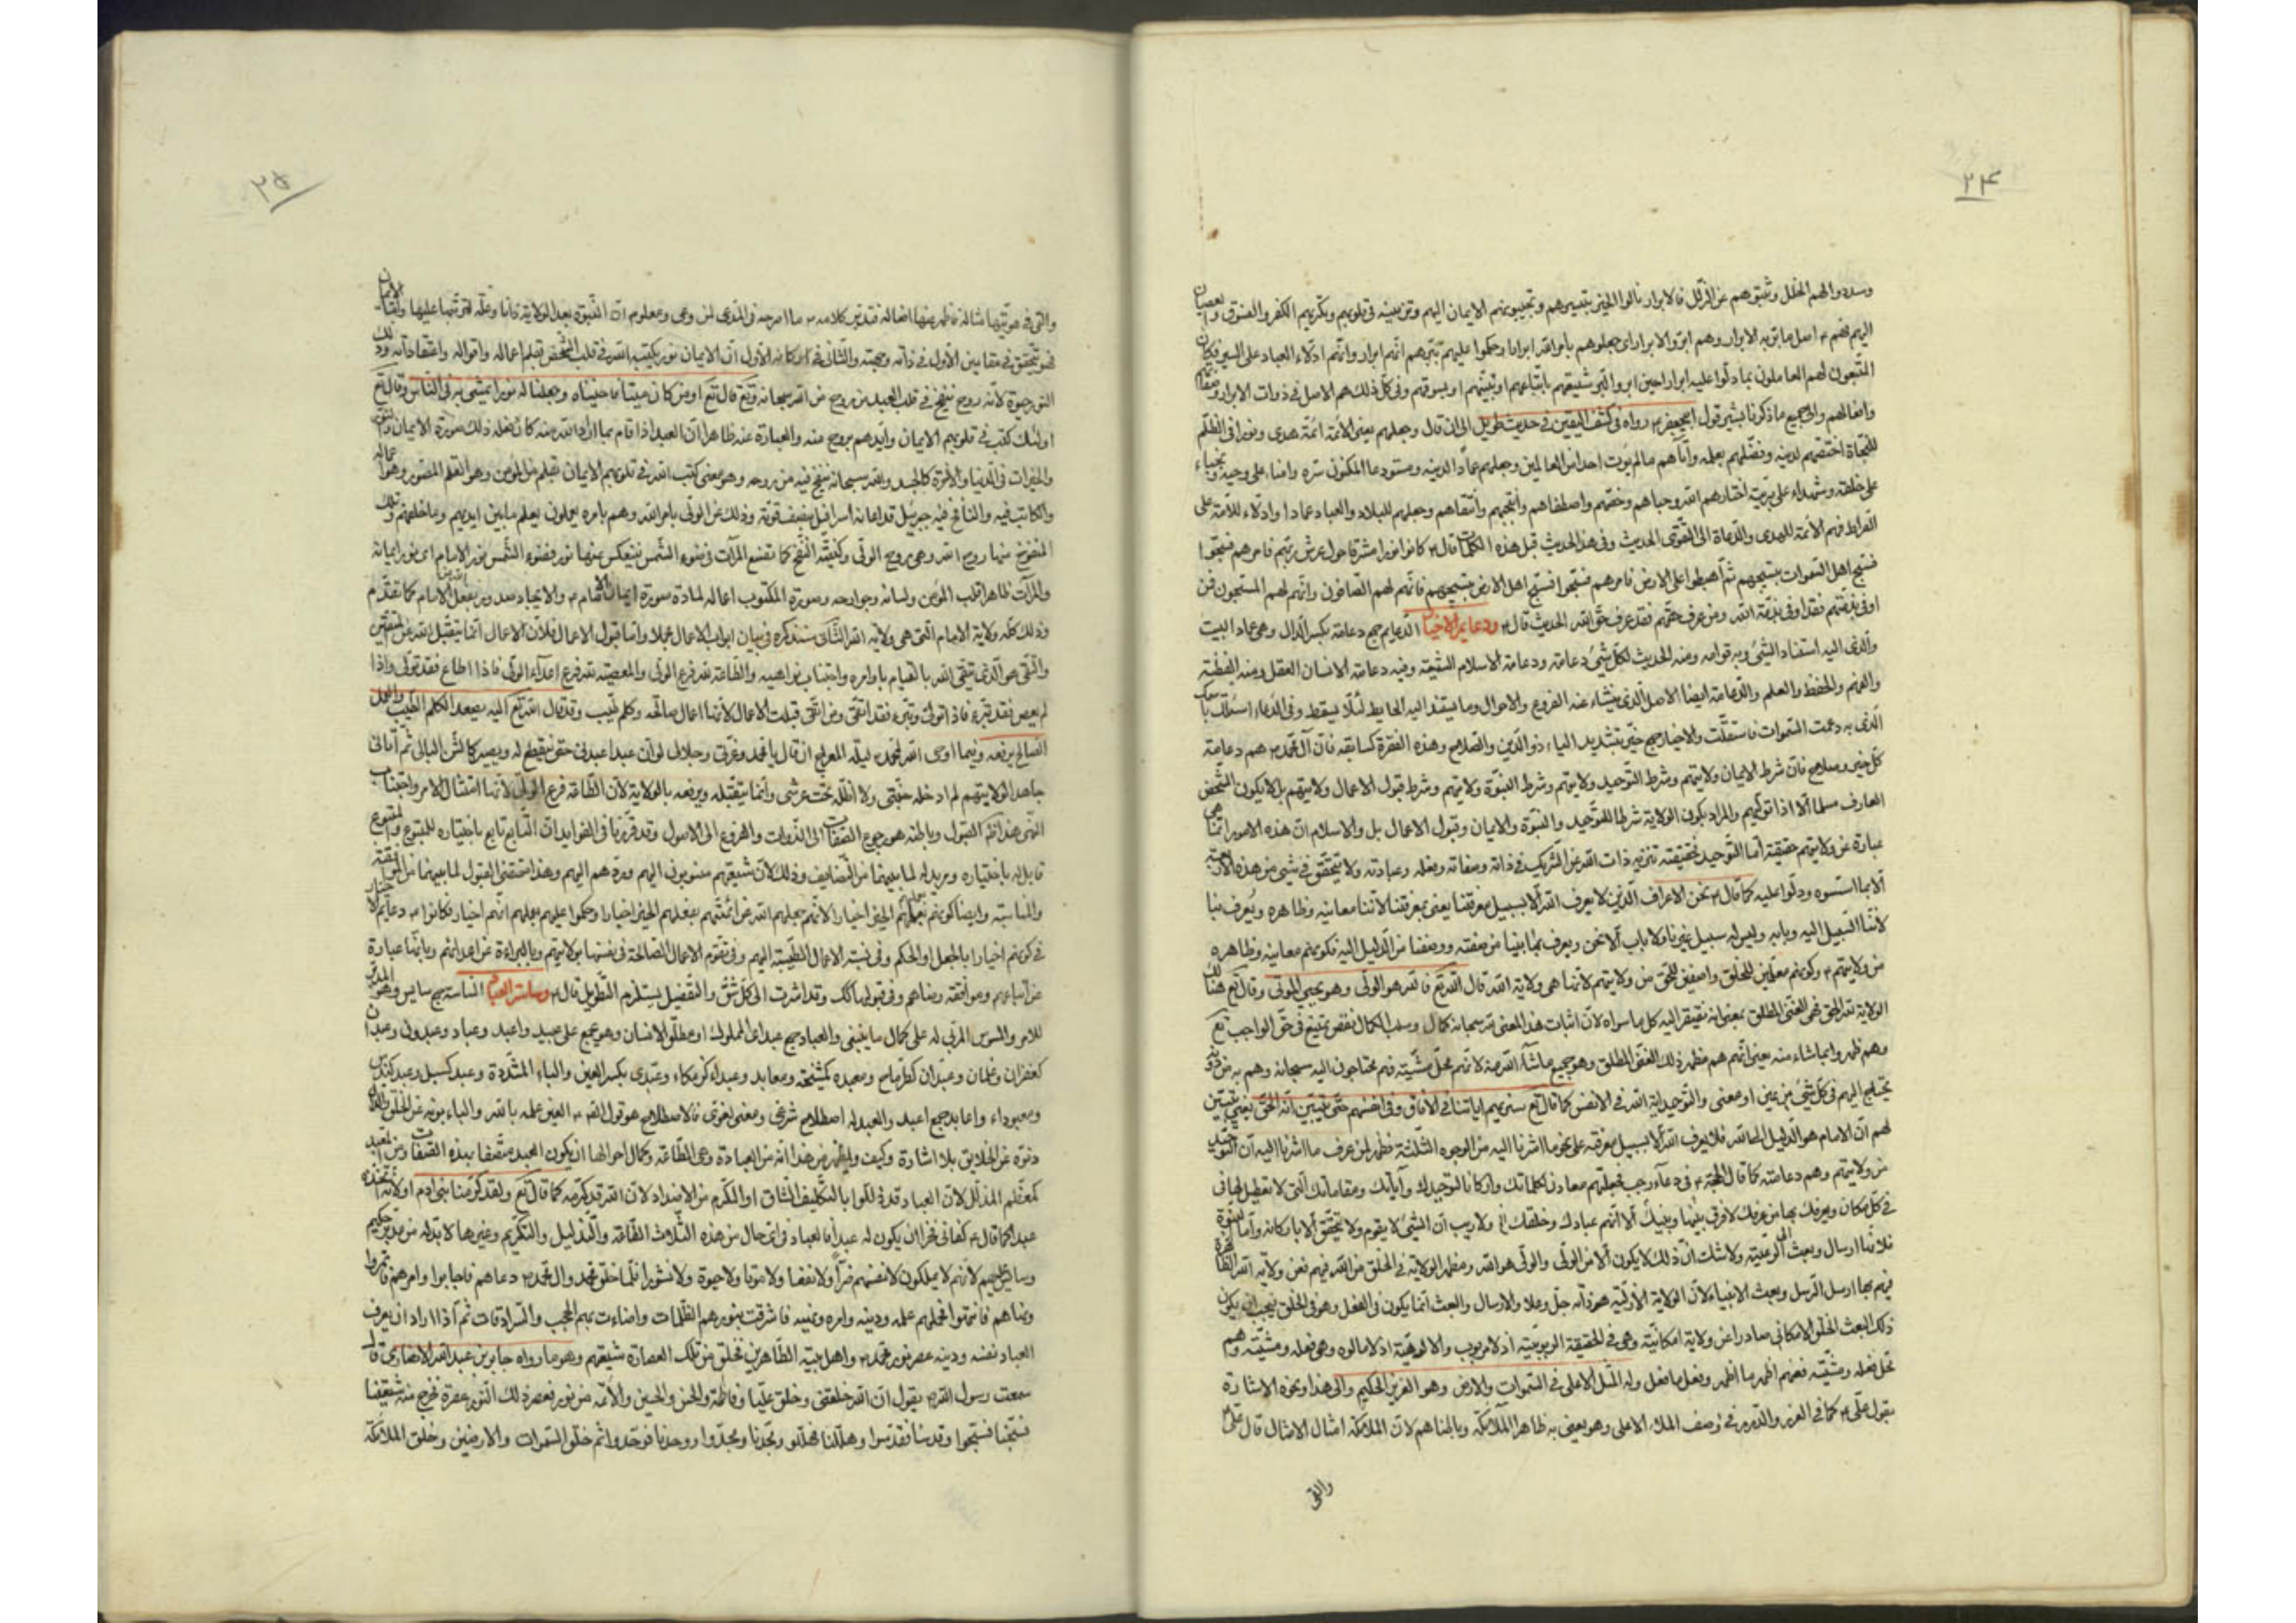 ۲۴
وسددوا لهم الخلل وثبتوهم عن الزلل فالابرار نالوا الخير بتعبيرهم وتحبيبهم الايمان اليهم وتزيينه في قلوبهم وتكريههم الكفر والفسوق والعصيان
اليهم فهم اصل ما بر به الابرار وهم ابروا الابرار اي جعلوهم بامر الله ابرارا وحكموا عليهم ببرهم انهم ابرار وانهم ادلاء العباد على السير فكان
المتبعون لهم العاملون بما دلوا عليه ابرارا حين ابروا شيعتهم باتباعهم او بتبنيتهم او بسوقهم وفي كل ذلك هم الاصل في ذوات الابرار وصفاتهم
وافعالهم والى جميع ما ذكرنا يشير قول ابي جعفر رواه في كشف اليقين في حديث طويل الى ان قال وجعلهم يعني الائمة ائمة هدى ونورا في الظلم
للنجاة اختصهم لدينه وفضلهم بعلمه وآتاهم ما لم يؤت احدا من العالمين وجعلهم عمادا لدينه ومستودعا لمكنون سره وامناء على وحيه ونجباء
على خلقه وشهداء على بريته اختارهم الله وحباهم وخصهم واصطفاهم وانتجبهم وانتقاهم وجعلهم للبلاد والعباد عمادا وادلاء للامة على
الصراط فهم الائمة للهدى والدعاة الى التقوى الحديث وفي هذا الحديث قبل هذه الكلمات قال كانوا نورا مشرقا حول عرش ربهم فامرهم فسبحوا
فسبح اهل السموات بتسبيحهم ثم اهبطوا على الارض فامرهم فسبحوا فسبح اهل الارض بتسبيحهم فانهم لهم الصافون وانهم لهم المسبحون فمن
اوفى بذمتهم فقد اوفى بذمة الله ومن عرف حقهم فقد عرف حق الله الحديث قال ودعايم الاخيار الدعايم جمع دعامة بكسر الدال وهي عماد البيت
والذي اليه استناد الشيء وبه قوامه ومنه الحديث لكل شيء دعامة ودعامة الاسلام الشيعة وفيه دعامة الانسان العقل ومنه الفطنة
والفهم والحفظ والعلم والدعامة ايضا الاصل الذي ينشاء عنه الفروع والاحوال وما يستند اليه الحايط لئلا يسقط وفي الدعاء اسئلك باسمك
الذي به دعمت السموات فاستقلت والاخيار جمع خير بتشديد الياء ذو الدين والصلاح وهذه الفقرة كسابقه فان آل محمد هم دعامة
كل خير وصلاح فان شرط الايمان ولايتهم وشرط التوحيد ولايتهم وشرط النبوة ولايتهم وشرط قبول الاعمال ولايتهم بل لا يكون الشخص
العارف مسلما الا اذا تولهم والمراد بكون الولاية شرطا للتوحيد والنبوة والايمان وقبول الاعمال بل والاسلام ان هذه الامور انما هي
عبارة عن ولايتهم حقيقة اما التوحيد فحقيقته تنزيه ذات الله عن الشريك في ذاته وصفاته وفعله وعبادته ولا يتحقق في شيء من هذه الاربعة
الا بما اسسوه ودلوا عليه كما قال نحن الاعراف الذين لا يعرف الله الا بسبيل معرفتنا يعني بمعرفتنا لاننا معانيه وظاهره ويعرف بنا
لاننا السبيل اليه وبابه وليس له سبيل غيرنا ولا باب الا نحن ويعرف بما بينا من صفته ووصفنا من الدليل اليه فكونهم معانيه وظاهره
من ولايتهم وكونهم معلمين للخلق واصفين للحق من ولايتهم لانها هي ولاية الله قال الله تع فالله هو الولي وهو يحيي الموتى وقال تع هنالك
الولاية لله الحق فهي الغنى المطلق بمعنى انه يفتقر اليه كل ما سواه لان اثبات هذا المعنى له سبحانه كمال وسلب الكمال نقص يمتنع في حق الواجب تع
وهم ظهروا بما شاء منه يعني انهم هم مظهر ذلك الغنى المطلق وهو جميع ما شاء الله منه لانهم محل مشيته فهم محتاجون اليه سبحانه وهم به من دونه
تحتاج اليهم في كل شيء من عين او معنى والتوحيد اية الله في الانفس كما قال تع سنريهم اياتنا في الافاق وفي انفسهم حتى يتبين لهم انه الحق يعني يتبين
لهم ان الامام هو الدليل الى الله فلا يعرف الله الا بسبيل معرفته على نحو ما اشرنا اليه من الوجوه الثلثة فظهر لمن عرف ما اشرنا اليه ان التوحيد
من ولايتهم وهم دعامته كما قال الحجة في دعاء رجب فجعلتهم معادن لكلماتك واركانا لتوحيدك وآياتك ومقاماتك التي لا تعطيل لها في
في كل مكان ويعرفك بها من عرفك لا فرق بينها وبينك الا انهم عبادك وخلقك الخ ولا ريب ان الشيء لا يقوم ولا يتحقق الا باركانه واما النبوة
فلانها ارسال وبعث الى الرعية ولا شك ان ذلك لا يكون الا من الولي والولي هو الله ومظهر الولاية في الخلق من الله فهم فعن ولاية الله الظاهرة
فيهم بها ارسل الرسل وبعث الانبياء لان الولاية الازلية هو ذاته جل وعلا والارسال والبعث انما يكون في الفعل وهو في الخلق فيجب ان يكون
ذلك البعث الخلقي الامكاني صادرا عن ولاية امكانية وهي في الحقيقة الربوبية اذ لا مربوب والالوهية اذ لا مالوه وهي فعله ومشيته وهم
محل فعله ومشيته فعنهم اظهر ما اظهر وفعل ما فعل وله المثل الاعلى في السموات والارض وهو العزيز الحكيم والى هذا ونحوه الاشارة
بقول علي كما في الغرر والدرر في وصف الملاء الاعلى وهو يعني به ظاهرا الملائكة وباطنا هم لان الملائكة امثال الامثال قال علي
والقى
۲۵
والقى في هويتها مثاله فاظهر عنها افعاله فتدبر كلامه ما اصرحه في المدعى لمن وعى ومعلوم ان النبوة بعد الولاية ذاتا وعلة لترتبها عليها واما الايمان
فهو يتحقق في مقامين الاول في ذاته وصحته والثاني في اركانه الاول ان الايمان نور يكتبه الله في قلب الشخص بقلم اعماله واقواله واعتقاداته وذلك
النور حيوة لانه روح ينفخ في قلب العبد من روح من الله سبحانه وتع قال تع اومن كان ميتا فاحييناه وجعلنا له نورا يمشي به في الناس وقال تع
اولئك كتب في قلوبهم الايمان وايدهم بروح منه والعبارة عنه ظاهرا ان العبد اذا قام بما اراد الله منه كان بفعله ذلك صورة الايمان والنور
والخيرات في الدنيا والاخرة كالجسد والله سبحانه ينفخ فيه من روحه وهو معنى كتب الله في قلوبهم الايمان بقلم من المؤمن وهو القلم المتصور وهو اعماله
والكاتب فيه والنافخ فيه جبرئيل قدامه اسرافيل بنصف قوته وذلك عن الولي بامر الله وهم بامره يعملون يعلم ما بين ايديهم وما خلفهم وتلك
المنفوخ منها روح الله وهي روح الولي وكيفية النفخ كما تضع المرآت في ضوء الشمس ينعكس عنها نور فضوء الشمس نور الامام اي نور ايمانه
والمرآت ظاهرا قلب المؤمن ولسانه وجوارحه وصورة المكتوب اعماله لمادة صورة ايمان الامام والايجاد من الله بفعل الامام كما تقدم
وذلك كله ولاية الامام التي هي ولاية الله الثاني سنذكره في بيان ابواب الاعمال عملا واما قبول الاعمال فلان الاعمال انما يتقبل الله من المتقين
والتقي هو الذي يتقي الله بالقيام باوامره واجتناب نواهيه والطاعة لله فرع الولي والمعصية لله فرع اعداء الولي فاذا اطاع فقد تولى واذا
لم يعص فقد تبرء فاذا تولى وتبرء فقد اتقى ومن اتقى قبلت الاعمال لانها اعمال صالحة وكلم طيب وقد قال الله تع اليه يصعد الكلم الطيب والعمل
الصالح يرفعه وفيما اوحى الله لمحمد ليلة المعراج ان قال يا محمد وعزتي وجلالي لو ان عبدا عبدني حتى ينقطع له ويصير كالشن البالي ثم اتاني
جاحدا لولايتهم لم ادخله جنتي ولا اظله تحت عرشي وانما يتقبله ويرفعه بالولاية لان الطاعة فرع الولي لانها امتثال الامر واجتناب
النهي هذا ظاهر القبول وباطنه هو رجوع الصفات الى الذوات والفروع الى الاصول وقد قررنا في الفوايد ان التابع تابع باختياره للمتبوع والمتبوع
قابل له باختياره ومريد له لما بينهما من التضايف وذلك لان شيعتهم منسوبون اليهم وردهم اليهم وهذا مقتضى القبول لما بينهما من الموافقة
والمناسبة وايضا كونهم بعملهم الخير اخيارا لانهم بجعلهم الله عن ائمتهم بفعلهم الخير اخيارا وحكموا عليهم بعملهم انهم اخيار فكانوا دعايم الاخيار
في كونهم اخيارا بالجعل او الحكم وفي نسبة الاعمال الطيبة اليهم وفي تقوم الاعمال الصالحة في نفسها بولايتهم وبالبراءة من اعدائهم وبانها عبارة
عن اتباعهم وموافقة رضاهم وفي قبولها كذلك وقد اشرت الى كل شق والتفصيل يستلزم التطويل قال وساسة العباد الساسة جمع سايس وهو المدبر
للامر والسوس المربي له على كمال ما ينبغي والعباد جمع عبد اي المملوك او مطلق الانسان وهو يجمع على عبيد واعبد وعباد وعبدون وعبدان
كغفران وغلمان وعبدان كطرماح ومعبده كمشيخة ومعابد وعبداء كزمكاء وعبدى بكسر العين والباء المشددة وعبد كسبل وعبد كندس
ومعبوداء واعابد جمع اعبد والعبد له اصطلاح شرعي ومعنى لغوي فالاصطلاح هو قول الله العين علمه بالله والباء بونه عن الخلق والدال
دنوه عن الخلايق بلا اشارة وكيف ويظهر من هذا انه من العبادة وهي الطاعة وكمال احوالها ان يكون العبد متصفا بهذه الصفات ومن التعبد
كمعظم المذلل لان العباد قد ذللوا بالتكليف الشاق او المكرم من الاضداد لان الله قد كرمه كما قال تع ولقد كرمنا بني ادم او لانه اتخذه
عبدا كما قال كفاني فخرا ان يكون له عبدا فالعباد في اي حال من هذه الثلاث الطاعة والتذليل والتكريم وغيرها لا بد له من مدبر حكيم
وسايس عليهم لانهم لا يملكون لانفسهم ضرا ولا نفعا ولا موتا ولا حيوة ولا نشورا فلما خلق محمد وال محمد دعاهم فاجابوا وامرهم فائتمروا
ونهاهم فانتهوا فحملهم علمه ودينه وامره ونهيه فاشرقت بنورهم الظلمات واضاءت بهم الحجب والسرادقات ثم اذا اراد ان يعرف
العباد نفسه ودينه عصر نور محمد واهل بيته الطاهرين فخلق من تلك العصارة شيعتهم وهو ما رواه جابر بن عبد الله الانصاري قال
سمعت رسول الله يقول ان الله خلقني وخلق عليا وفاطمة والحسن والحسين والائمة من نور فعصر ذلك النور عصرة فخرج منه شيعتنا
فسبحنا فسبحوا وقدسنا فقدسوا وهللنا فهللوا ومجدنا ومجدوا ووحدنا فوحدوا ثم خلق السموات والارضين وخلق الملائكة